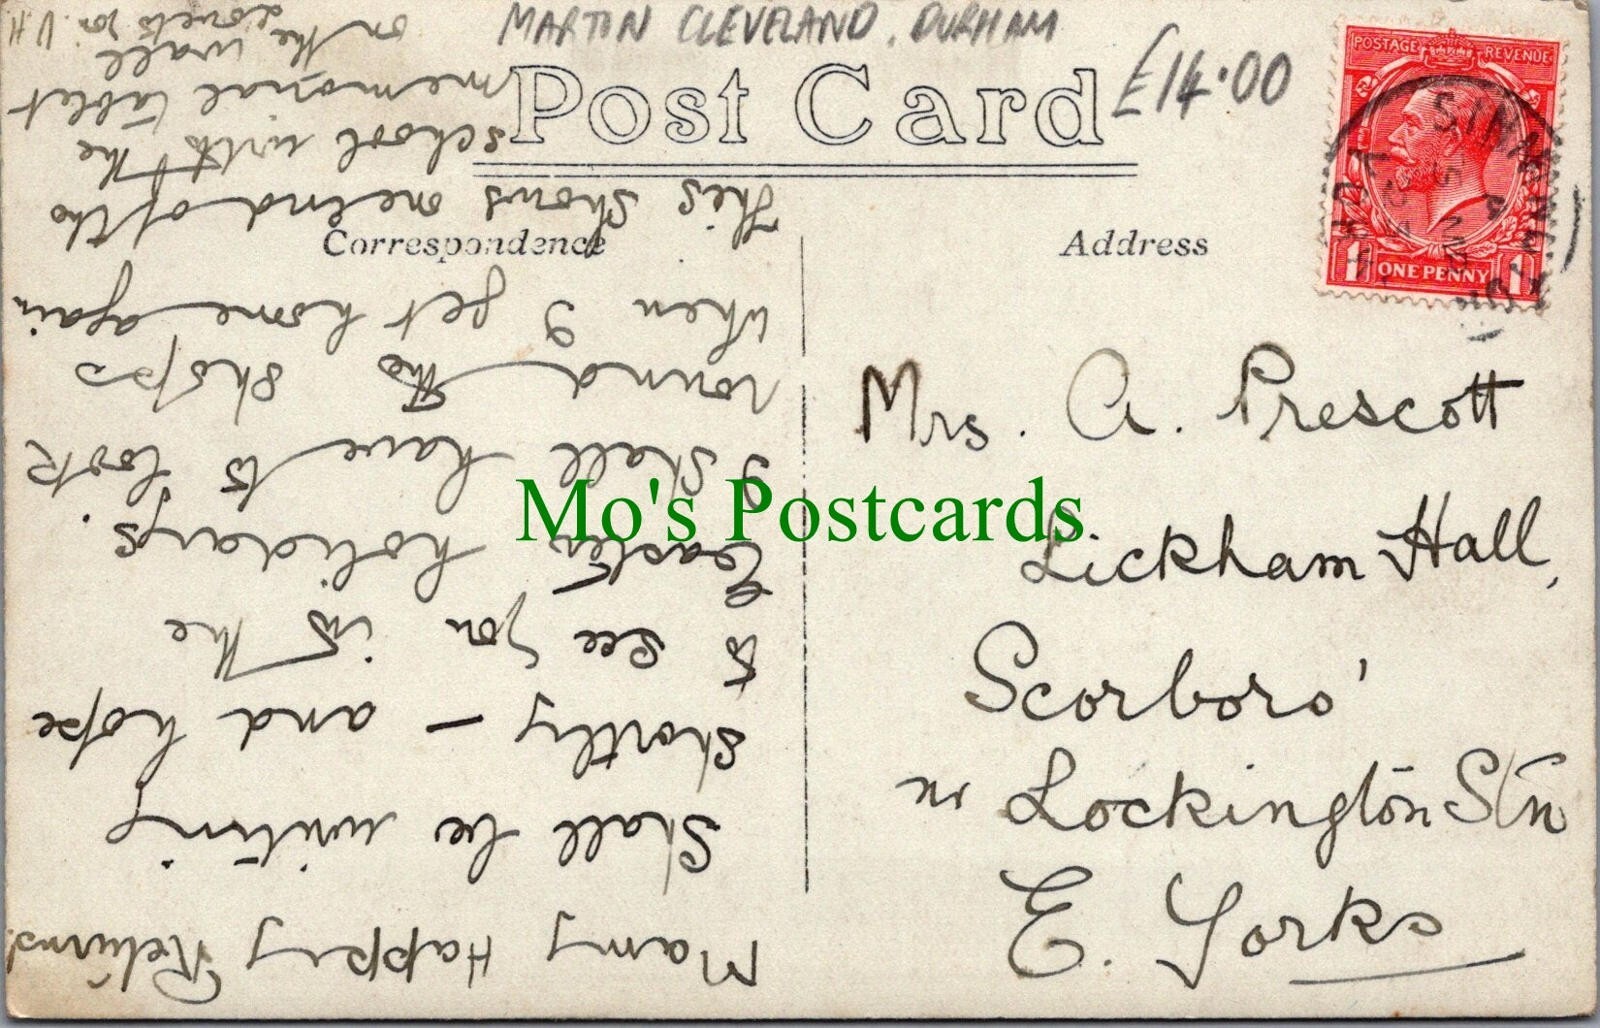 MARTON CLEVELAND. DURHAM
£14.00
Post Card
Correspondence
Address
POSTAGE REVENUE
ONE PENNY
1 1
Mrs. A. Prescott
Lickham Hall,
Scorboro'
nr Lockington Stn
E. Yorks
Many Happy Returns.
Shall be writing
shortly - and hope
to see you in the
Easter holidays.
I shall have to look
round the shops
when I get home again
This shows one end of the
school with the
memorial tablet
on the wall
Love to you. V.H
Mo's Postcards